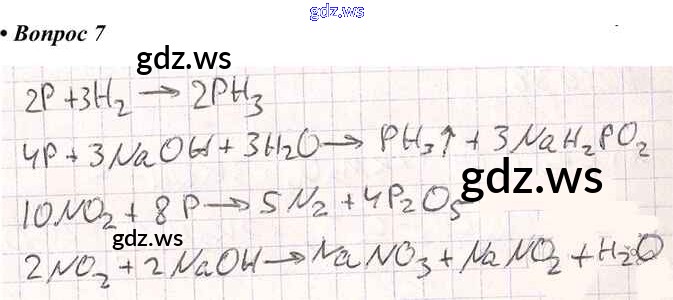 gdz.ws
• Вопрос 7
gdz.ws
2P + 3H₂ → 2PH₃
4P + 3NaOH + 3H₂O → PH₃↑ + 3NaH₂PO₂
gdz.ws
10NO₂ + 8P → 5N₂ + 4P₂O₅
gdz.ws
2NO₂ + 2NaOH → NaNO₃ + NaNO₂ + H₂O